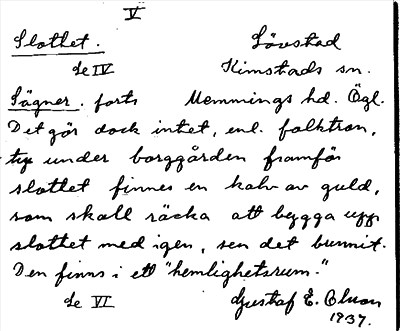 V
Slottet.
Lövstad
Se IV
Kimstads sn.
Sägner. forts
Memmings hd. Ögl.
Det gör dock intet, enl. folktron,
ty under borggården framför
slottet finnes en kalv av guld,
som skall räcka att bygga upp
slottet med igen, sen det brunnit.
Den finns i ett "hemlighetsrum."
Se VI
Gustaf E. Olson
1937.